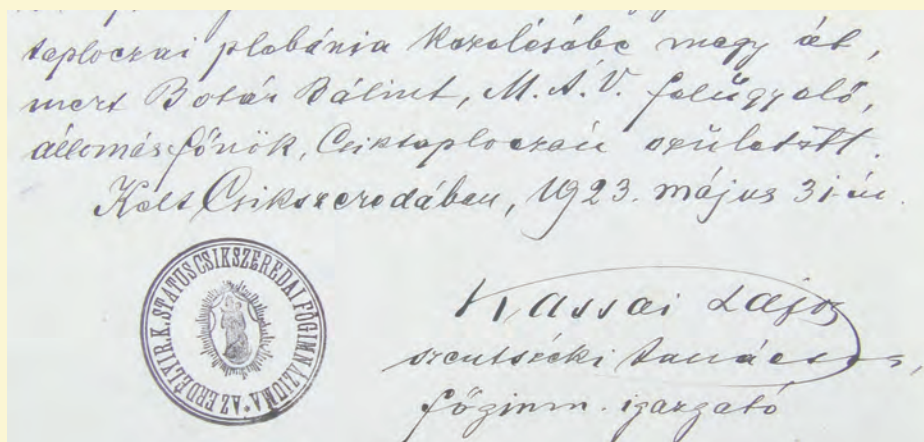 taploczai plébánia kezelésébe megy át,
mert Botár Bálint, M.Á.V. felügyelő,
állomásfőnök, Csiktaploczán született.
Kelt Csikszeredában, 1923. május 31-én.
AZ ERDÉLYI R.K. STATUS CSIKSZEREDAI FŐGIMNÁZIUMA
Kassai Lajos
szentszéki tanácsos,
főgimn. igazgató